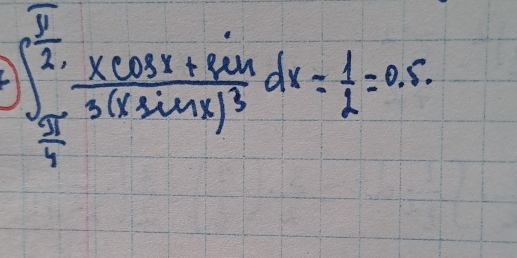 ∫_{π/4}^{π/2} \frac{x cosx + sin}{3(x sinx)^3} dx = \frac{1}{2} = 0.5.